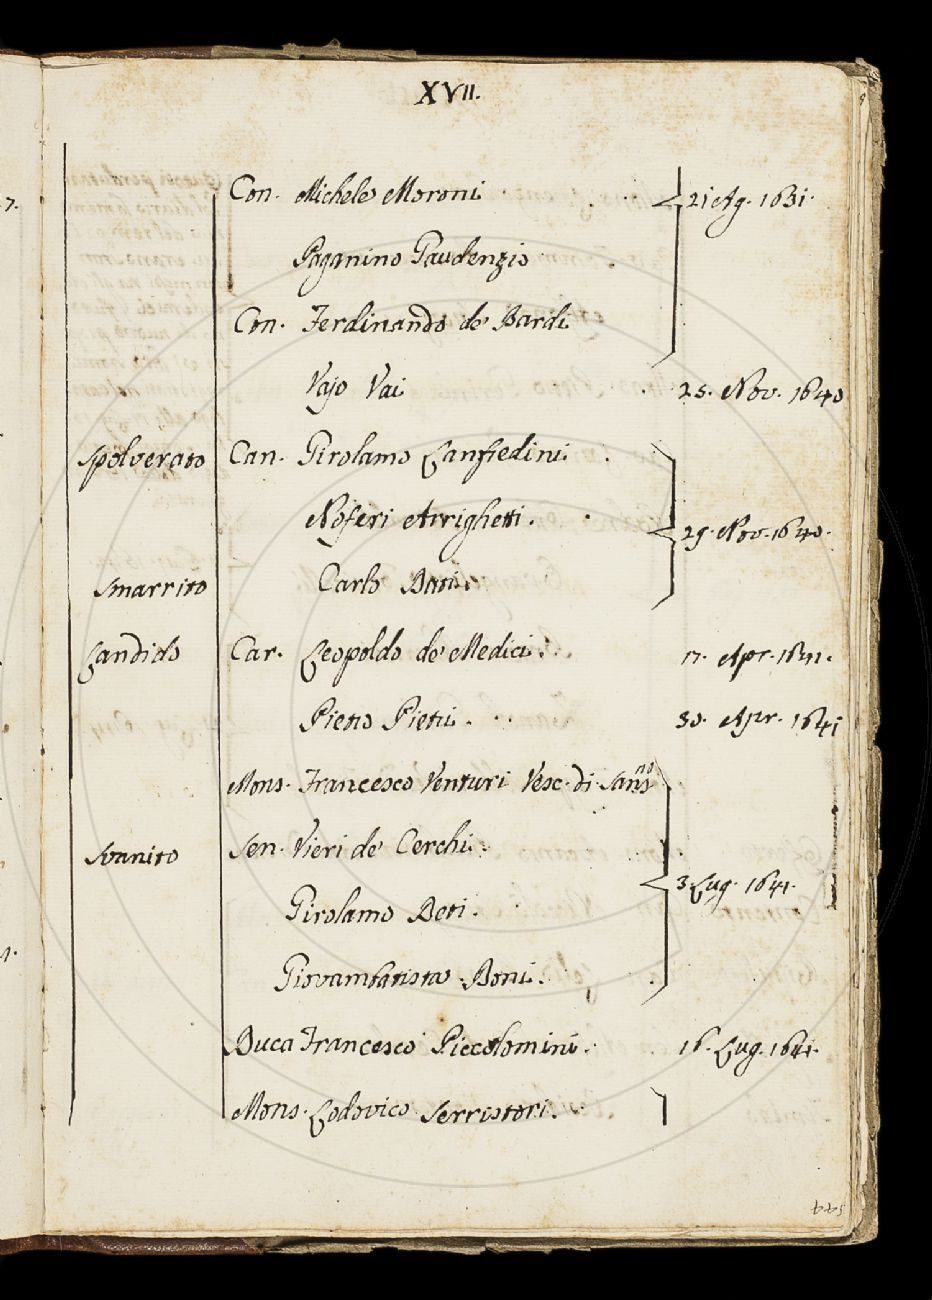 XVII.
Con. Michele Moroni
21 Ag. 1631.
Paganino Gaudenzio
Con. Ferdinando de Bardi
Vajo Vai 25. Nov. 1640
Spolverato Can. Girolamo Lanfredini.
Noferi Arrighetti.
29. Nov. 1640.
Smarrito Carlo Dati.
Candido Car. Leopoldo de Medici. 17. Apr. 1641.
Pietro Pietri. 30. Apr. 1641
Mons. Francesco Venturi Vesc. di San S.no
Svanito Sen. Vieri de Cerchi.
3 Lug. 1641.
Girolamo Beti.
Giovambatista Doni.
Duca Francesco Piccolomini. 16. Lug. 1641.
Mons. Lodovico Serristori.